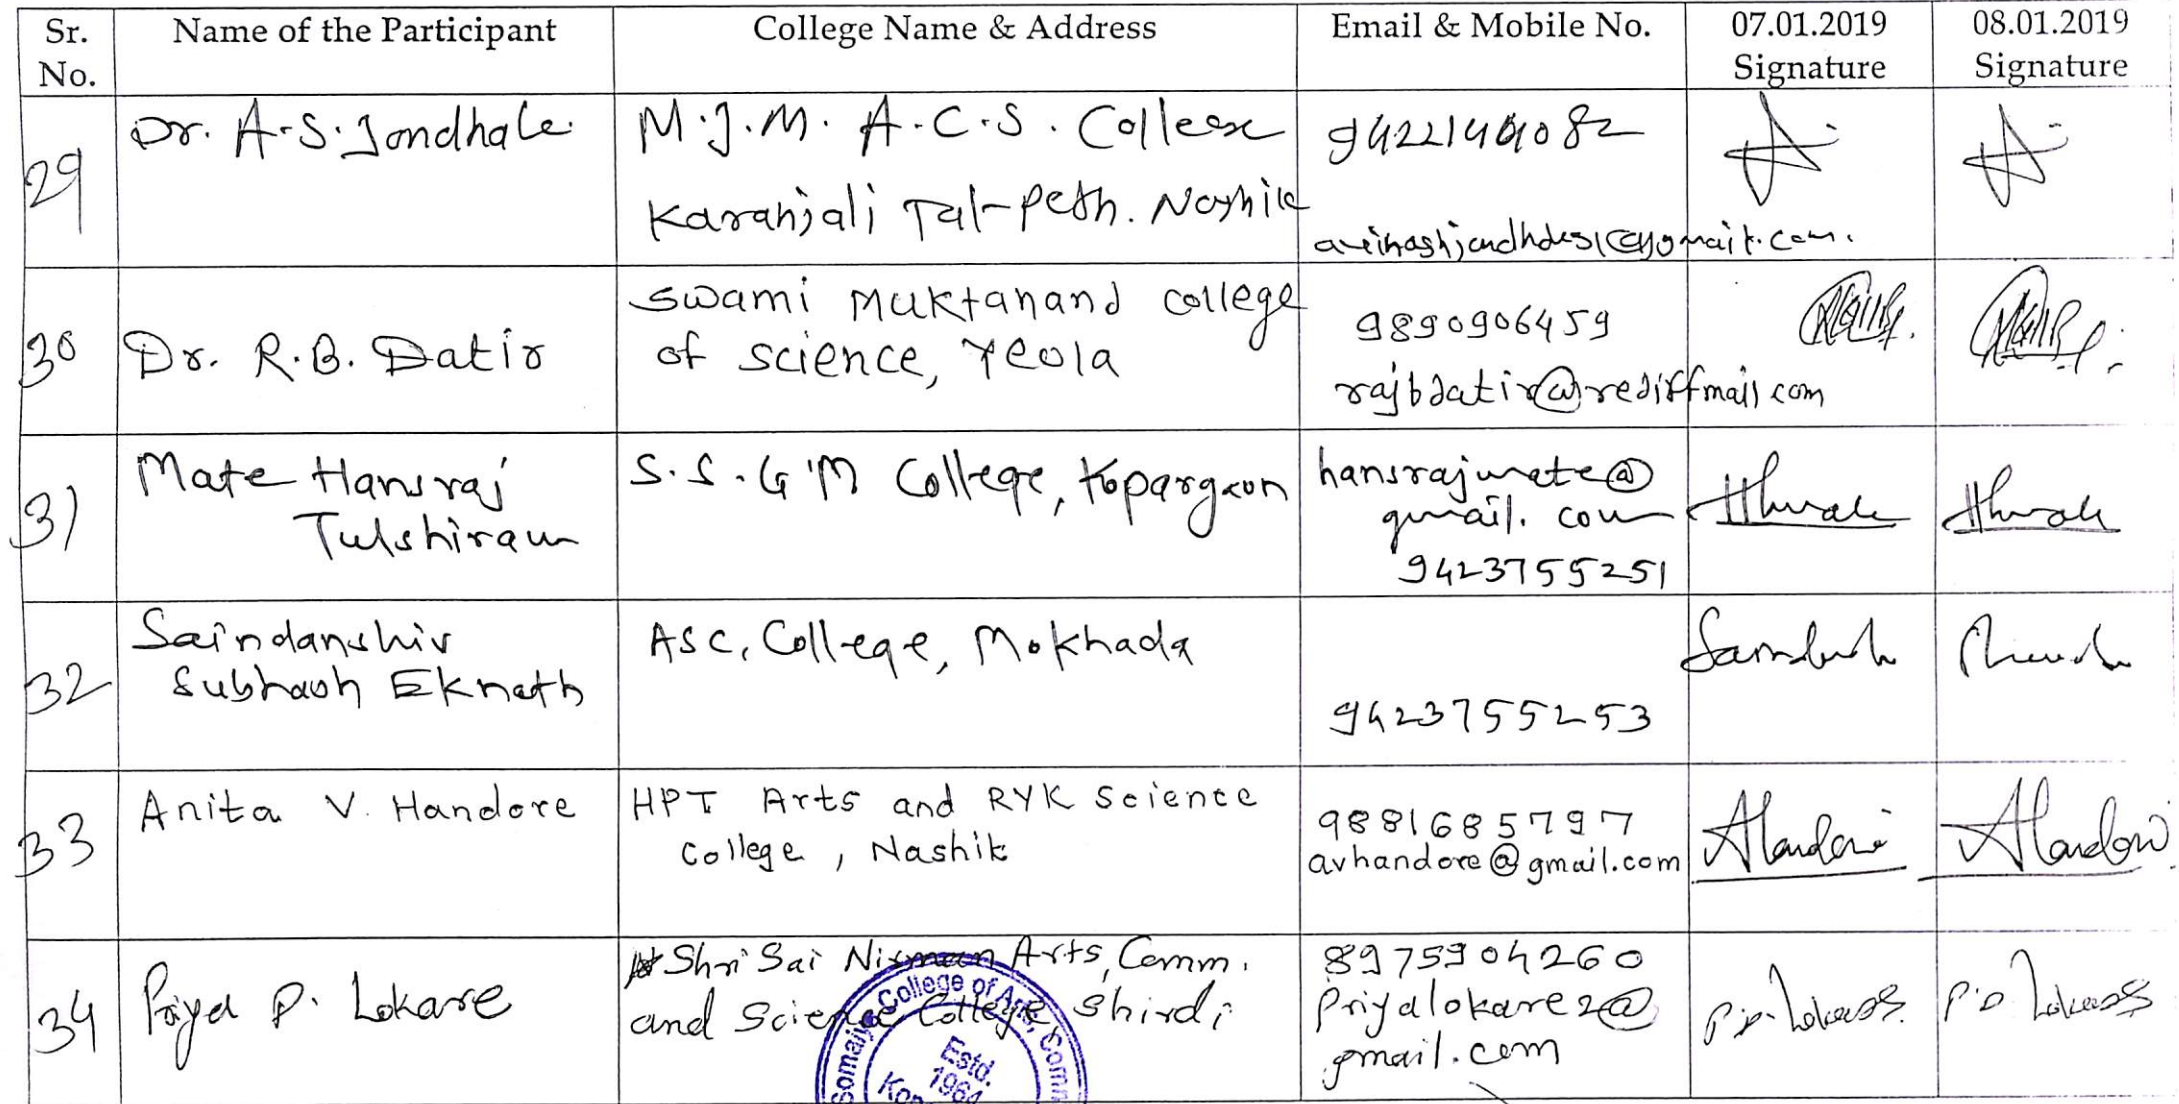 Sr. No. Name of the Participant College Name & Address Email & Mobile No. 07.01.2019 Signature 08.01.2019 Signature
29 Dr. A.S. Jondhale M.J.M. A.C.S. College
Karanjali Tal-Peth. Nashik
30 Dr. R.B. Datir Swami Muktanand college
of science, Yeola
9890906459
rajbdatir@rediffmail.com
31 Mate Hansraj
Tulshiram
S.S.G.M College, Kopargaon
hansrajmate@
gmail.com
9423755251
32 Saindanshiv
Subhash Eknath
ASC, College, Mokhada
9423755253
33 Anita V. Handore
HPT Arts and RYK Science
College, Nashik
9881685797
avhandore@gmail.com
34 Priya P. Lokare
Shri Sai Nirman Arts, Comm.
and Science College, Shirdi
8975904260
Priyalokare2@
gmail.com
P.P. Lokare
P.P. Lokare
Somaiya College of Arts, Comm
Estd.
1964